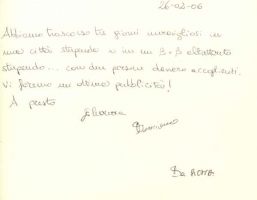 26-02-06
Abbiamo trascorso tre giorni meravigliosi in
una città stupenda e in un B+B altrettanto
stupendo... con due persone davvero accoglienti.
Vi faremo un'ottima pubblicità!
A presto
Eleonora
Da ROMA